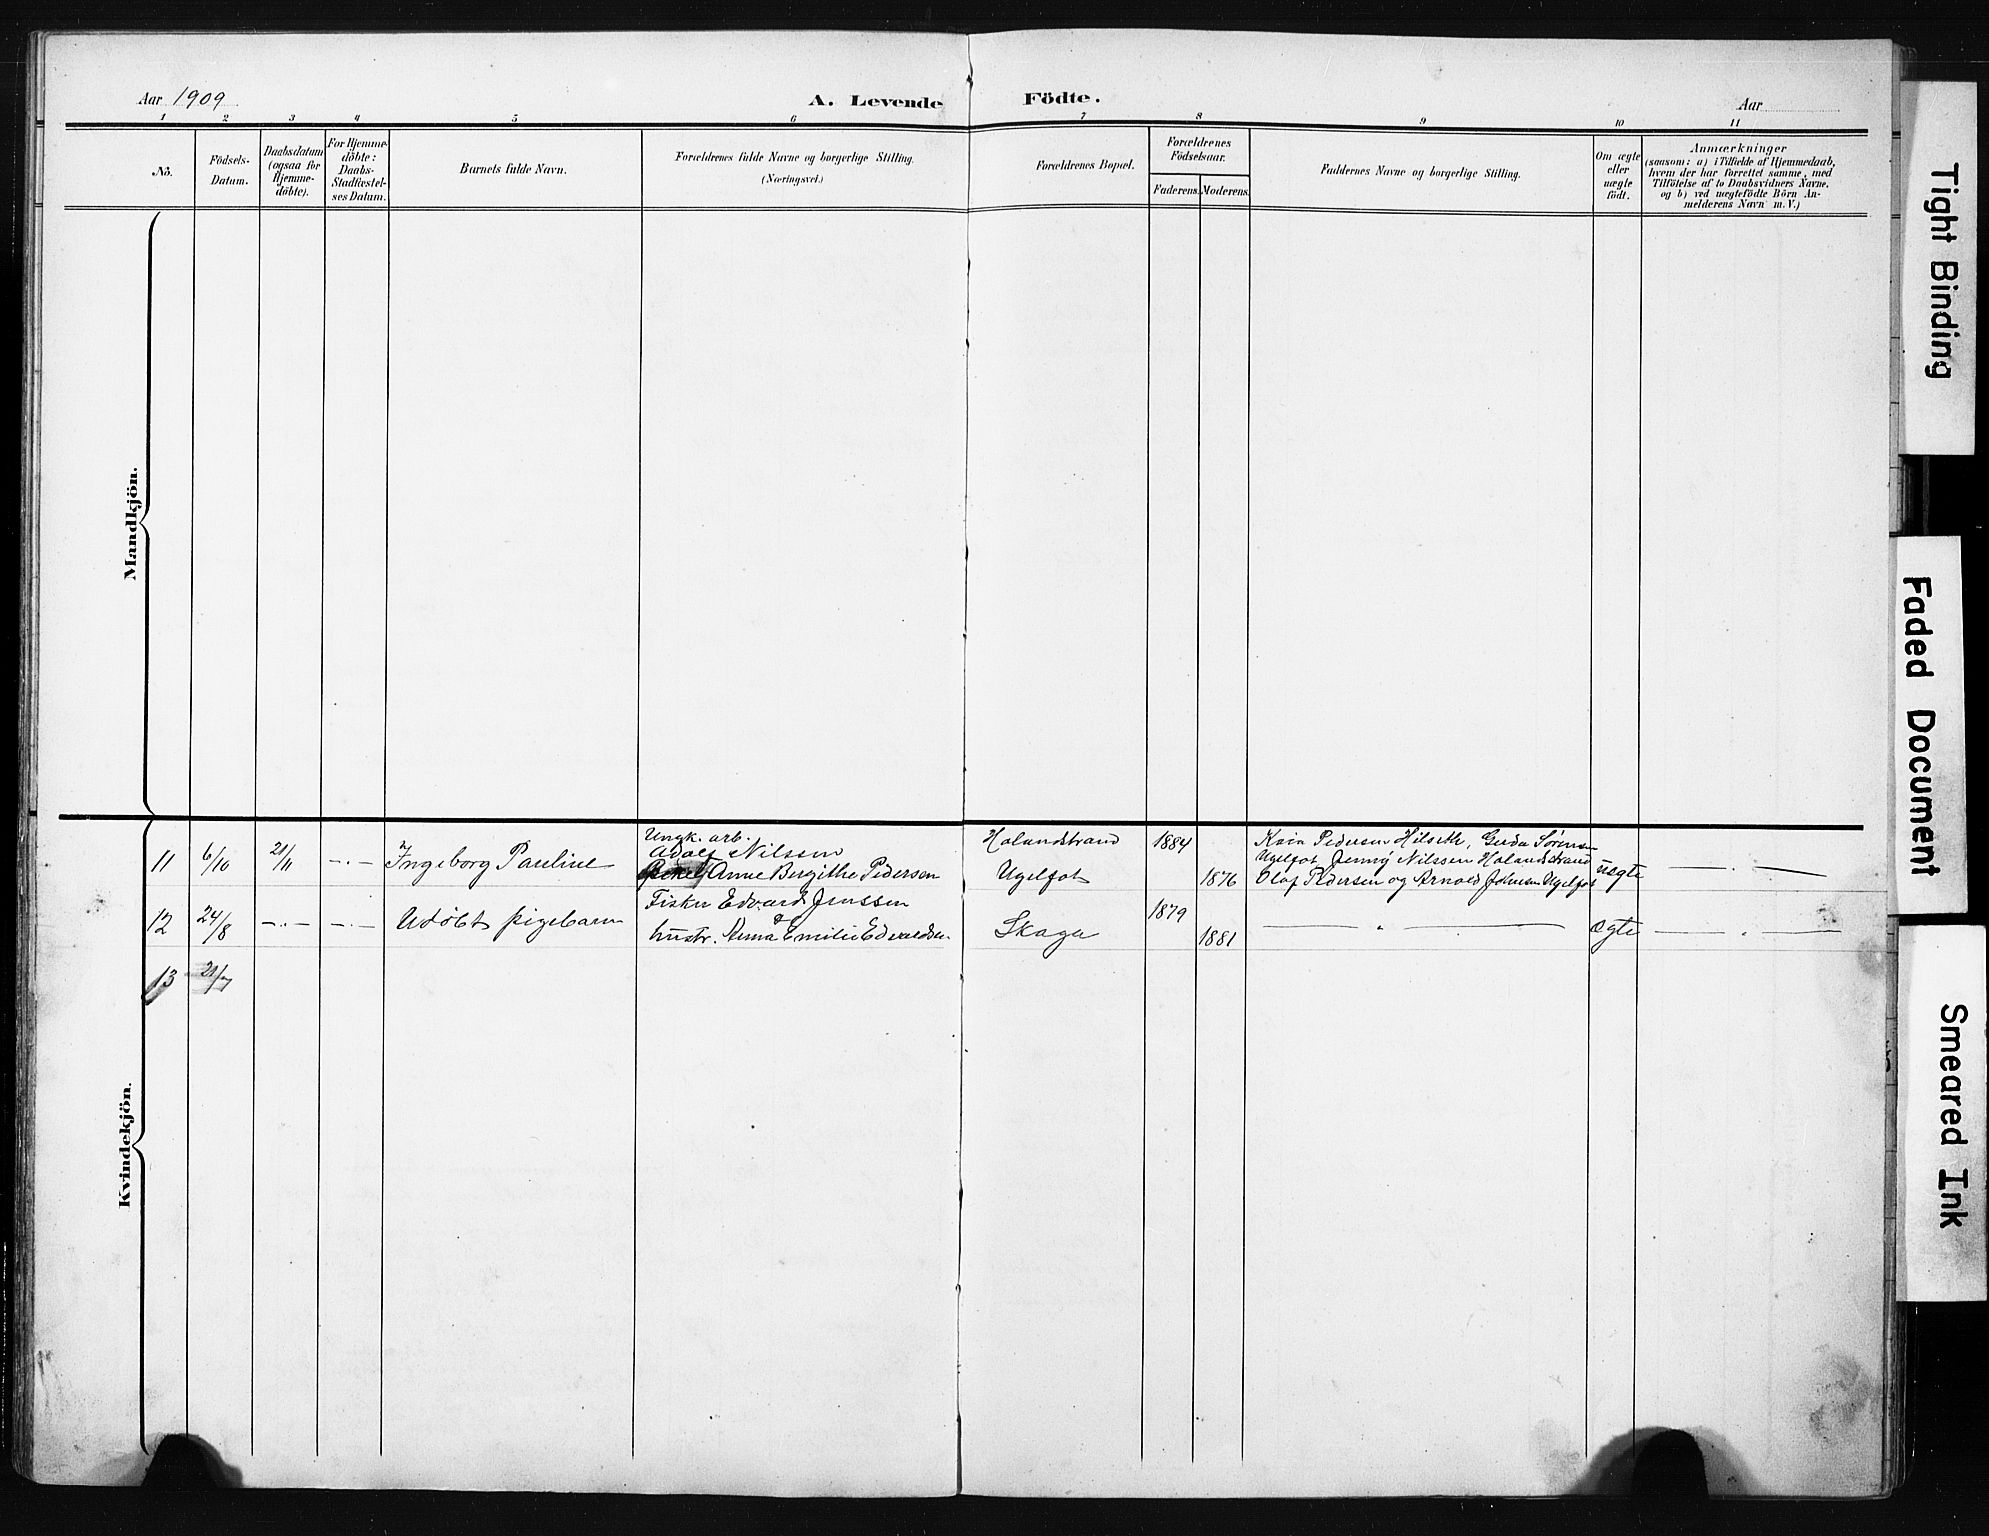 Aar 1909
A. Levende Födte.
Aar
1 2 3 4 5 6 7 8 9 10 11
No.
Födsels-
Datum.
Daabsdatum
(ogsaa for
Hjemme-
döbte).
For Hjemme-
döbte:
Daabs-
Stadfæstel-
ses Datum.
Barnets fulde Navn.
Forældrenes fulde Navne og borgerlige Stilling.
(Næringsvei.)
Forældrenes Bopæl.
Forældrenes
Födselsaar.
Faderens. Moderens.
Faddernes Navne og borgerlige Stilling.
Om ægte
eller
uægte
födt.
Anmærkninger
(saasom: a) i Tilfælde af Hjemmedaab,
hvem der har forrettet samme, med
Tilföielse af to Daabsvidners Navne,
og b) ved uægtefödte Börn An-
melderens Navn m. V.)
Mandkjön.
Kvindekjön.
11 6/10 21/11 —.— Ingeborg Pauline
Ungk. arb.
Adolf Nilssen
Anne Bergithe Pedersen
Holandstrand
Ugelfot
1884
1876
Pedersen Hilseth, Gerda Sørensen
Ugelfot, Jenny Nilssen Holandstrand
Olaf Pedersen og Arnold Johnsen Ugelfot
uægte
—.—
12 24/8 —..— —.— Udøbt pigebarn
Fisker Edvard Jenssen
hustr. Anna Emilie Edvardsen
Skaga
1879
1881
— " —
Ægte
— " —
13 21/7
Tight Binding
Faded Document
Smeared Ink